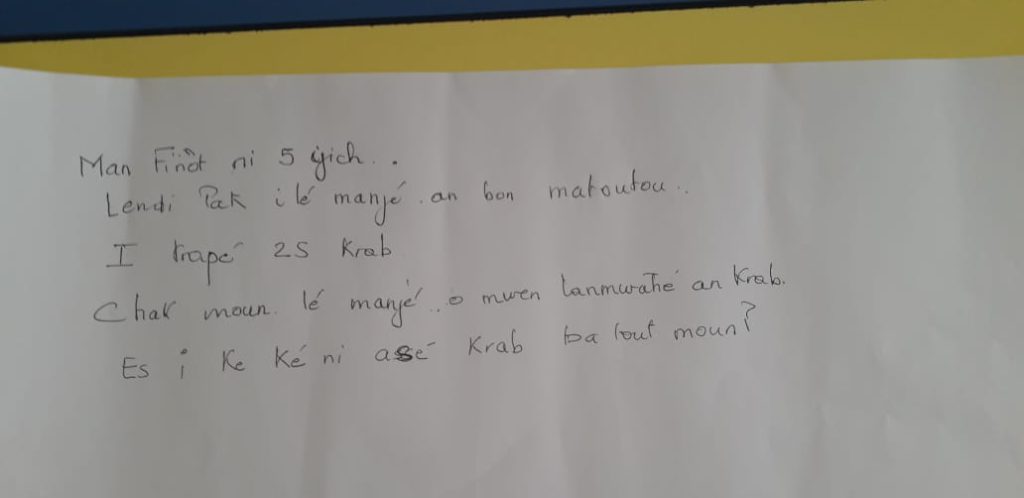 Man Finot ni 5 yich..
Lendi Pak i lé manjé an bon matoutou..
I trapé 25 Krab
Chak moun lé manjé..o mwen lanmwatié an Krab.
Es i Ke Ké ni asé Krab ba tout moun?